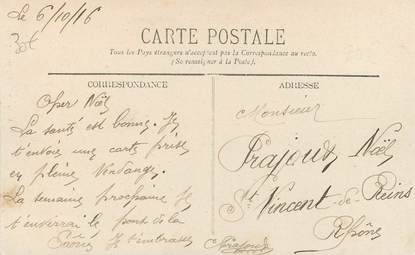 Le 6/10/16
30f
CARTE POSTALE
Tous les Pays étrangers n'acceptent pas la Correspondance au recto.
(Se renseigner à la Poste).
CORRESPONDANCE
Cher Noël
La santé est bonne. Je
t'envoie une carte prise
en pleine Vendange.
La semaine prochaine Je
t'enverrai le pont de la
Saône. Je t'embrasse
Prajoux
ADRESSE
Monsieur
Prajoux Noël
St Vincent-de-Reins
Rhône